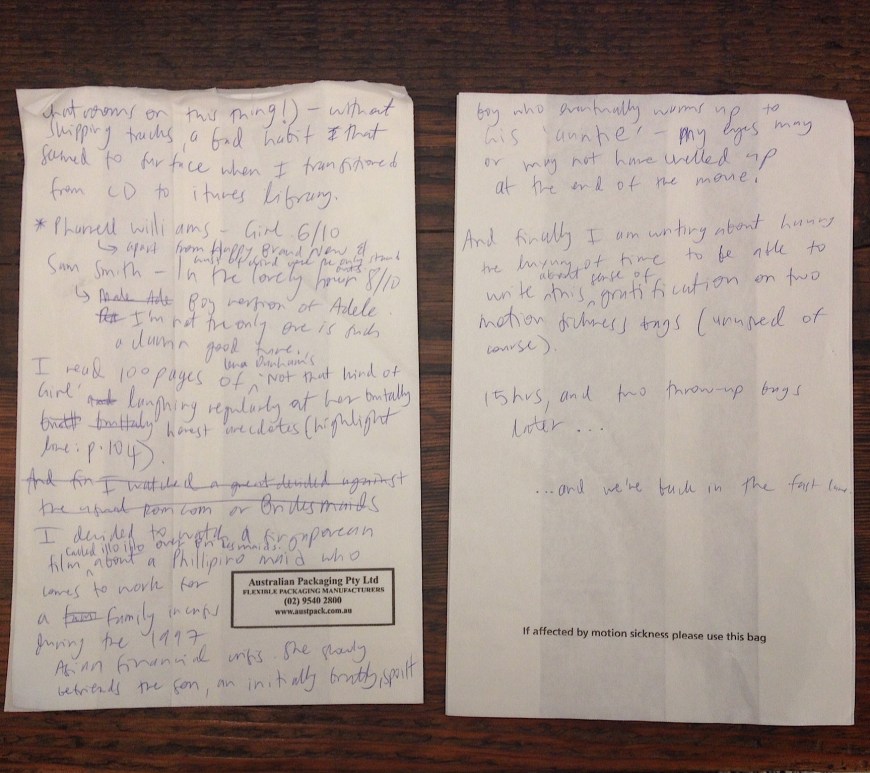 chatrooms on this thing!) - without
skipping tracks, a bad habit I that
seemed to surface when I transitioned
from CD to itunes library.
* Pharrell Williams - Girl 6/10
↳ apart from Happy, Brand New &
were the only stand
outs
Sam Smith - In the lonely hour 8/10
↳ Male Ade Boy version of Adele.
I'm not the only one is such
a damn good tune.
Lena Dunham's
I read 100 pages of ^ 'Not that kind of
Girl' and laughing regularly at her brutally
brutt bruttaly honest anecdotes (highlight
line: p.104).
And fin I watched a great decided against
the usual romcom or Bridesmaids
I decided to watch a Singaporean
called illo illo over Bridesmaids.
film ^ about a Phillipino maid who
comes to work for
a family in crisis
during the 1997
Asian financial crisis. She slowly
befriends the son, an initially bratty, spoilt
Australian Packaging Pty Ltd
FLEXIBLE PACKAGING MANUFACTURERS
(02) 9540 2800
www.austpack.com.au
boy who eventually warms up to
his 'auntie' - my eyes may
or may not have welled up
at the end of the movie.
And finally I am writing about having
the luxury of time to be able to
about sense of
write this ^ gratification on two
motion sickness bags (unused of
course).
15hrs, and two throw-up bags
later ...
...and we're back in the fast lane
If affected by motion sickness please use this bag